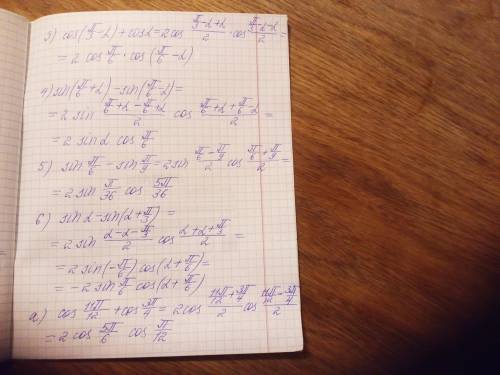 3) cos(π/3-α)+cosα=2cos (π/3-α+α)/2 · cos (π/3-α-α)/2 =
= 2 cos π/6 · cos(π/6-α)
4) sin(π/6+α)-sin(π/6-α)=
= 2 sin (π/6+α-π/6+α)/2 cos (π/6+α+π/6-α)/2 =
= 2 sinα cos π/6
5) sin π/6 - sin π/9 = 2sin (π/6-π/9)/2 cos (π/6+π/9)/2 =
= 2 sin π/36 cos 5π/36
6) sinα-sin(α+π/3)=
= 2 sin (α-α-π/3)/2 cos (α+α+π/3)/2 =
= 2 sin(-π/6) cos(α+π/6)=
= -2 sin π/6 cos(α+π/6)
а) cos 11π/12 + cos 3π/4 = 2cos (11π/12+3π/4)/2 cos (11π/12-3π/4)/2
= 2 cos 5π/6 cos π/12